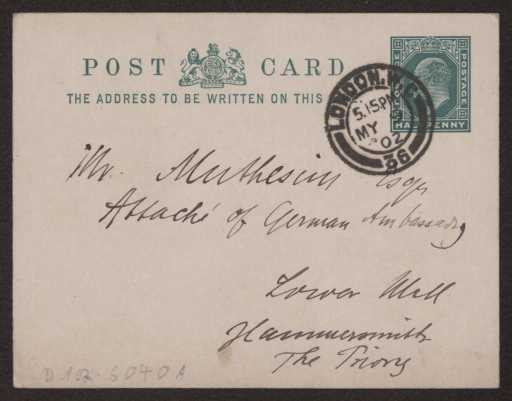 POST CARD
THE ADDRESS TO BE WRITTEN ON THIS
POSTAGE
HALFPENNY
LONDON.W.C.
5.15PM
MY
02
36
Mr. Muthesius Esqr
Attaché of German Ambassady
Lower Mall
Hammersmith
The Priory
D 102-6040A